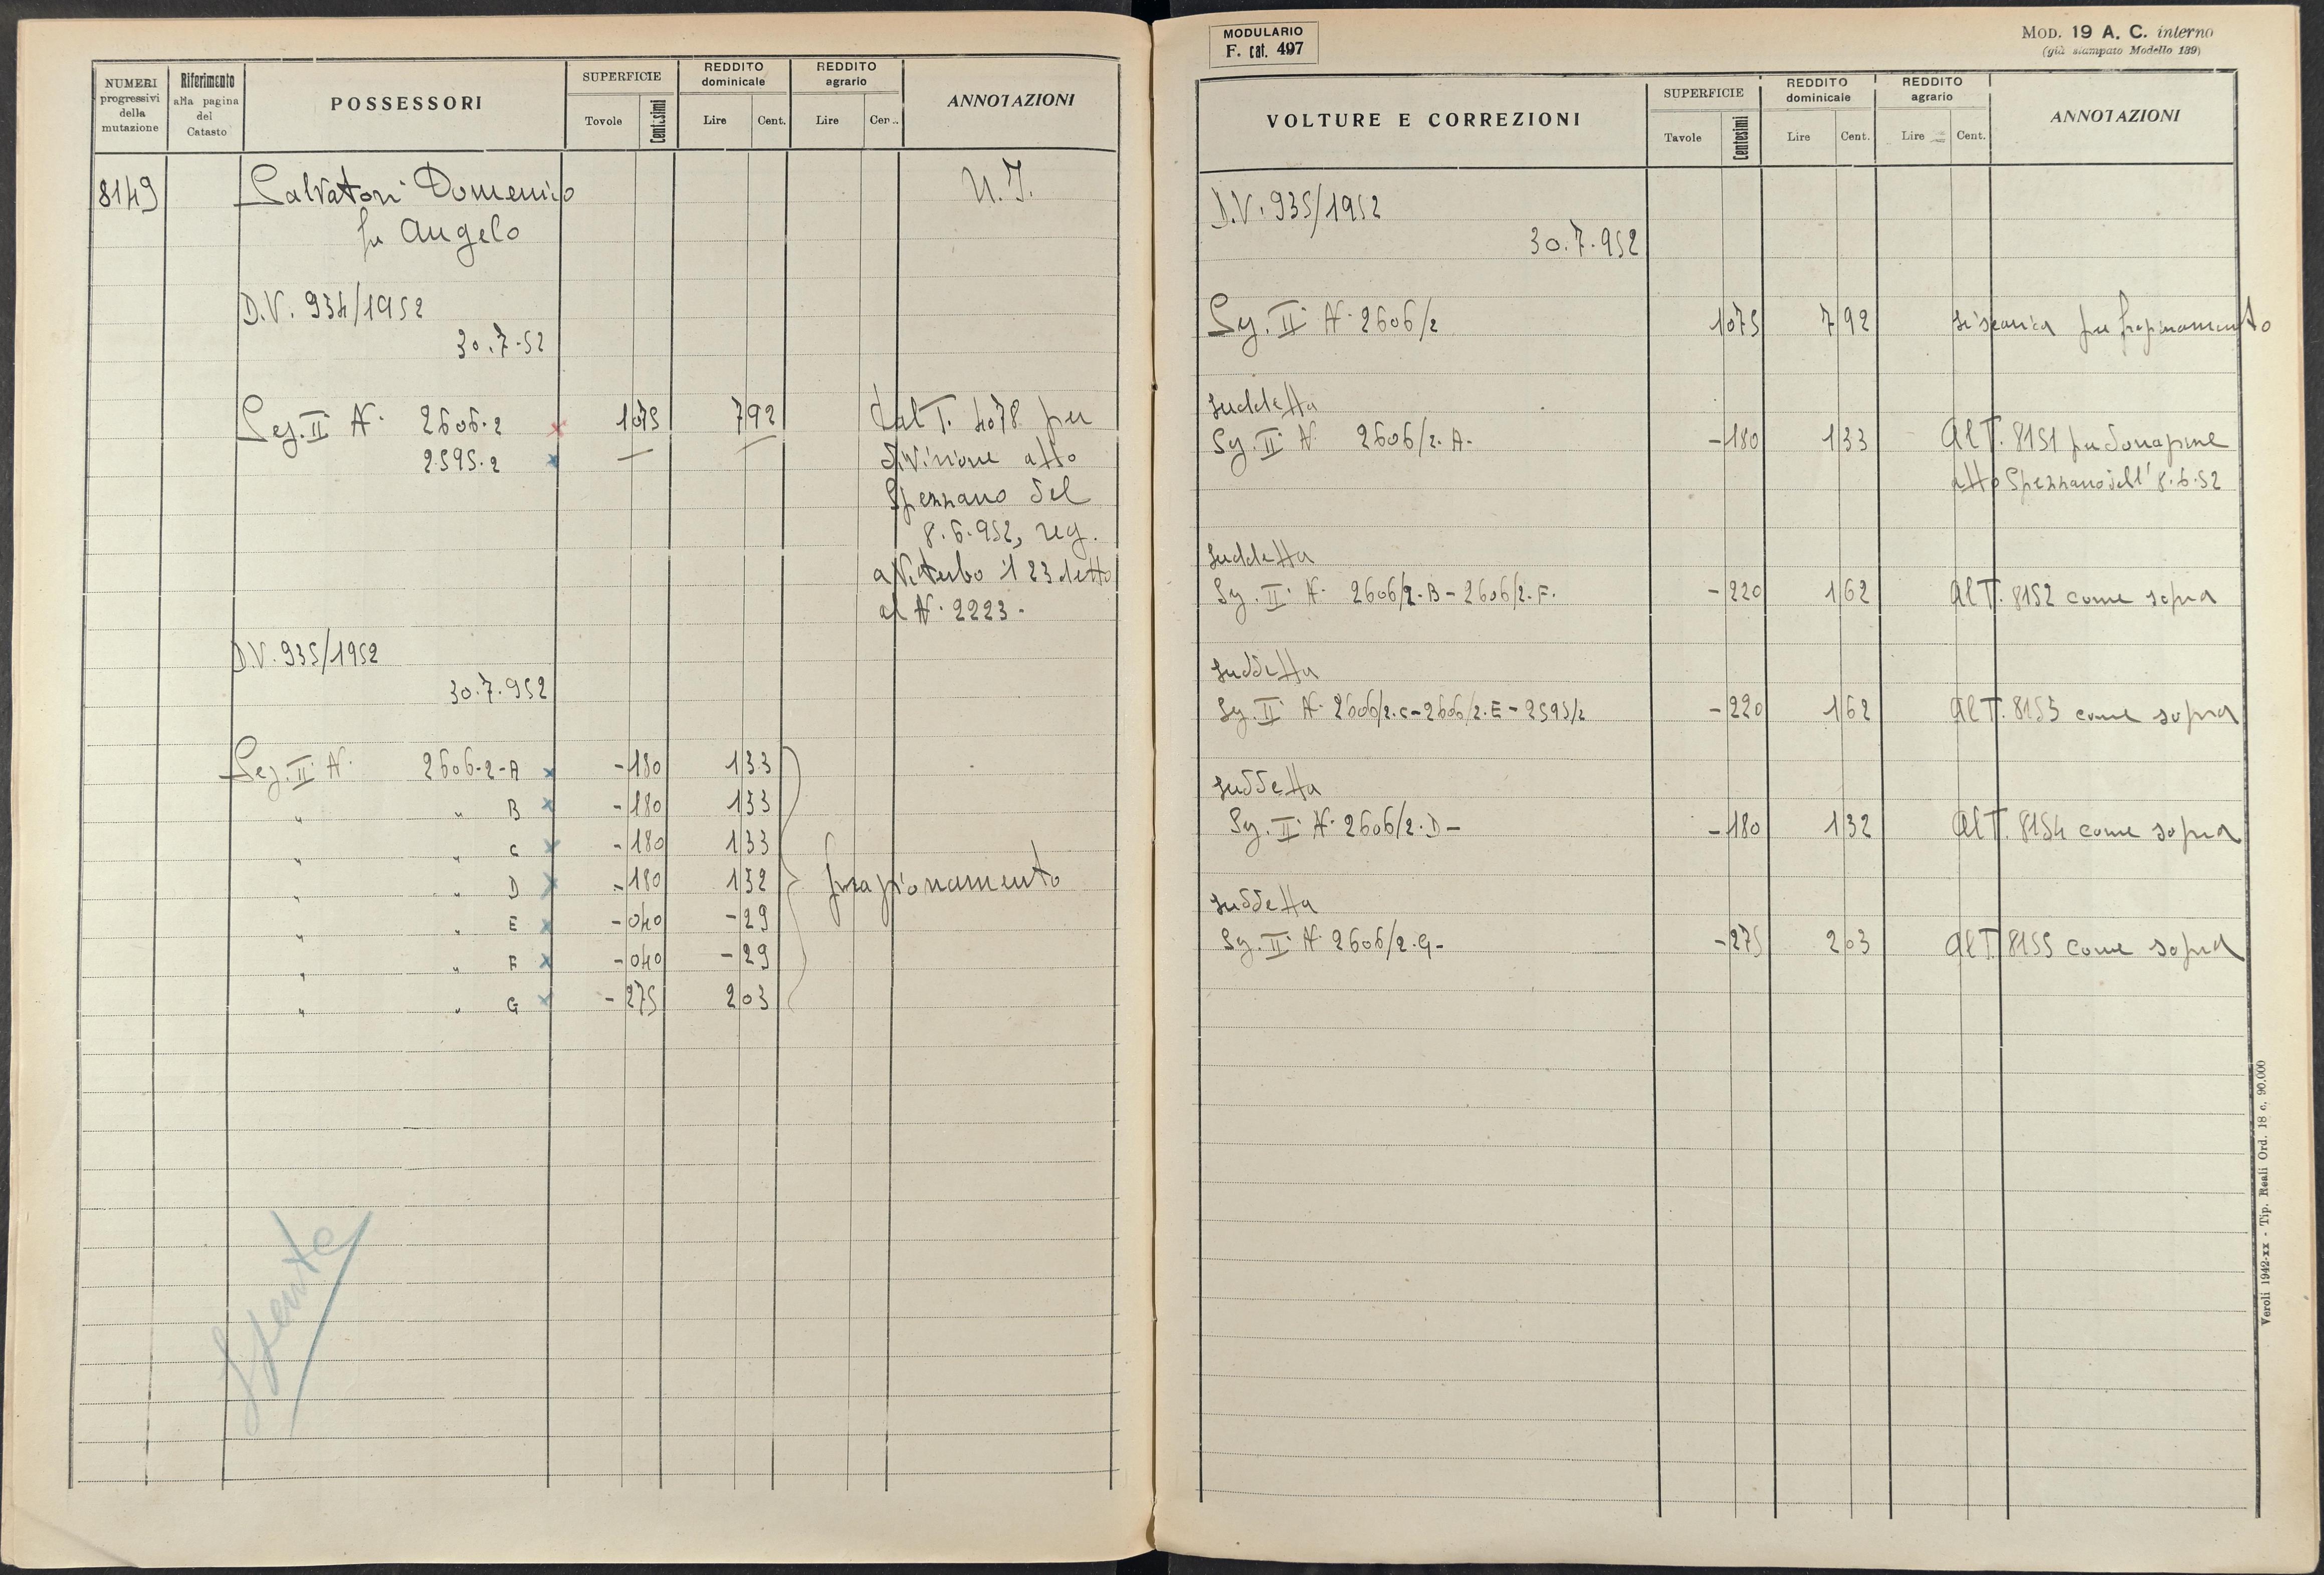 NUMERI progressivi della mutazione
Riferimento alla pagina del Catasto
POSSESSORI
SUPERFICIE
Tovole Centesimi
REDDITO dominicale
Lire Cent.
REDDITO agrario
Lire Cen..
ANNOTAZIONI
8149 Salvatori Domenico U.I.
fu Angelo
D.V. 934/1952
30.7.52
Sez. II N. 2606.2 x 1 075 7 92 dal T. 4078 per
2595.2 x — — divisione atto
Spezzano del
8.6.952, reg.
a Viterbo il 23 detto
al N. 2223.
D.V. 935/1952
30.7.952
Sez. II N. 2606-2-A x - 180 1 33
" " B x - 180 1 33
" " C x - 180 1 33
" " D x - 180 1 32 frazionamento
" " E x - 040 - 29
" " F x - 040 - 29
" " G x - 275 2 03
Spenta
MODULARIO
F. cat. 497
MOD. 19 A. C. interno
(già stampato Modello 189)
VOLTURE E CORREZIONI
SUPERFICIE
Tavole Centesimi
REDDITO dominicale
Lire Cent.
REDDITO agrario
Lire Cent.
ANNOTAZIONI
D.V. 935/1952
30.7.952
Sez. II N. 2606/2 1 075 7 92 si scarica per frazionamento
suddetta
Sez. II N. 2606/2.A- - 180 1 33 Al T. 8151 per donazione
atto Spezzano dell' 8.6.52
suddetta
Sez. II N. 2606/2.B - 2606/2.F. - 220 1 62 Al T. 8152 come sopra
suddetta
Sez. II N. 2606/2.C - 2606/2.E - 2595/2 - 220 1 62 Al T. 8153 come sopra
suddetta
Sez. II N. 2606/2.D- - 180 1 32 Al T. 8154 come sopra
suddetta
Sez. II N. 2606/2.G- - 275 2 03 Al T. 8155 come sopra
Veroli 1942-XX - Tip. Reali Ord. 18 c. 90.000